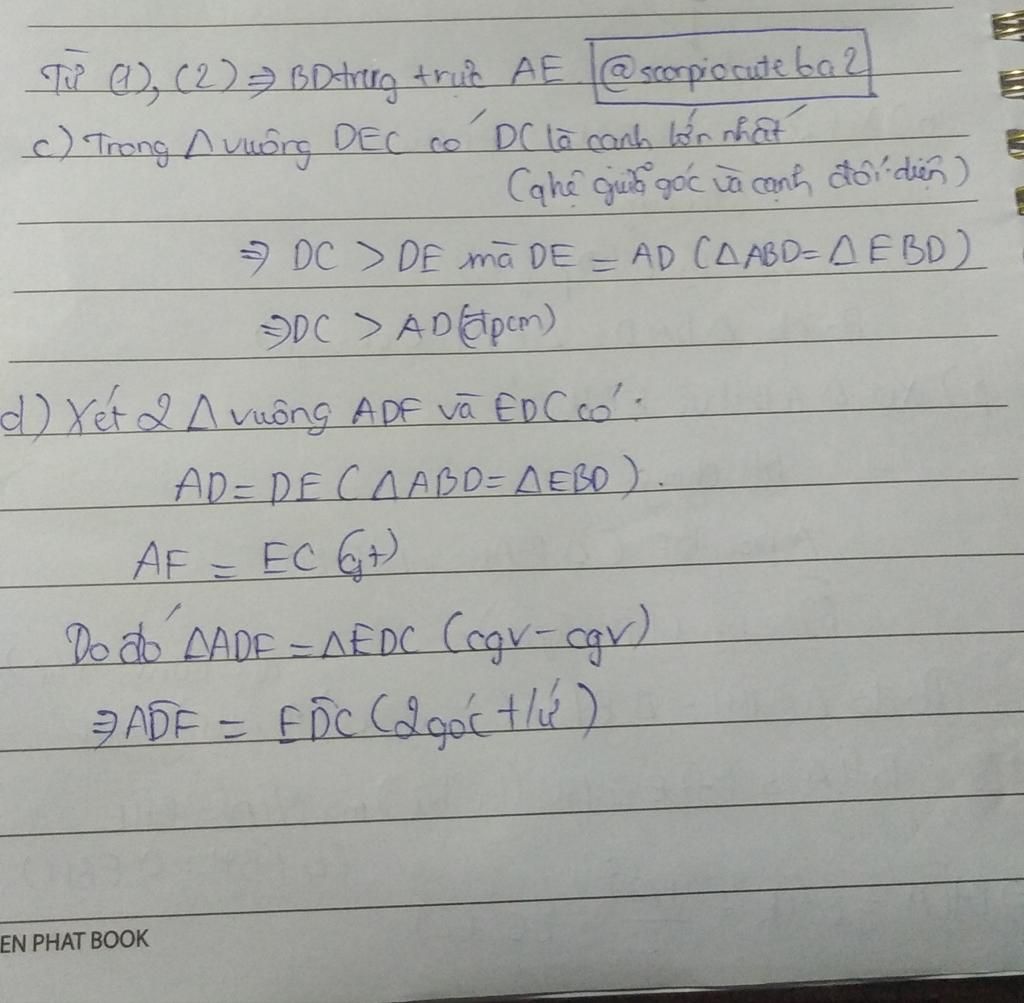 Từ (1), (2) ⇒ BD trung trực AE @scorpiocuteba2
c) Trong Δ vuông DEC có DC là cạnh lớn nhất
(qhệ giữa góc và cạnh đối diện)
⇒ DC > DE mà DE = AD (ΔABD = ΔEBD)
⇒ DC > AD (đpcm)
d) Xét 2 Δ vuông ADF và EDC có:
AD = DE (ΔABD = ΔEBD).
AF = EC (gt)
Do đó ΔADF = ΔEDC (cgv - cgv)
⇒ ADF = EDC (2 góc t/ứ)
EN PHAT BOOK